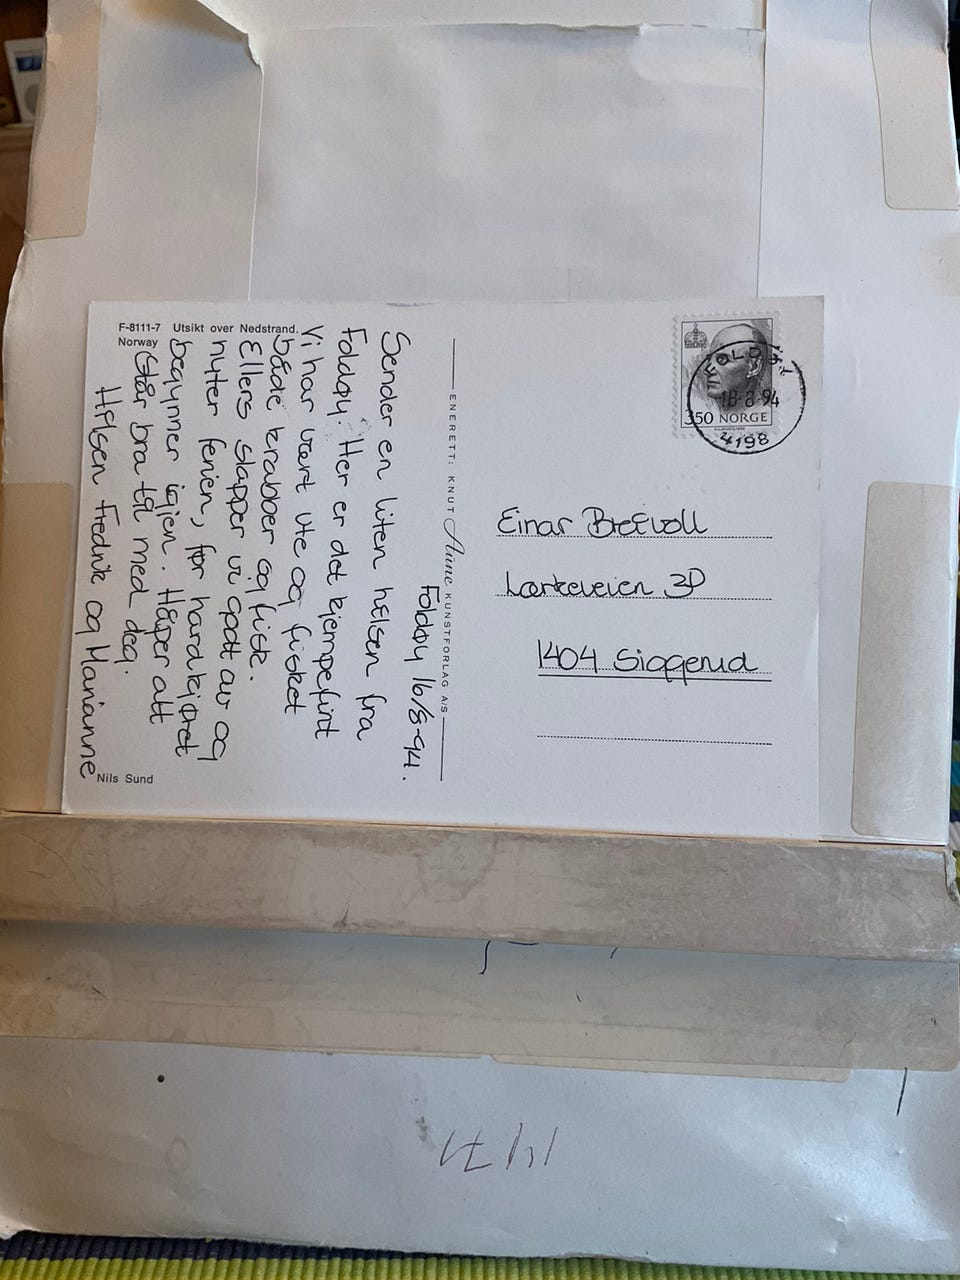 F-8111-7 Utsikt over Nedstrand.
Norway
Foldøy 16/8-94.
Sender en liten hilsen fra
Foldøy. Her er det kjempefint
Vi har vært ute og fisket
både krabber og fisk.
Ellers slapper vi godt av og
nyter ferien, før hardkjøret
begynner igjen. Håper alt
står bra til med deg.
Hilsen Fredrik og Marianne
Nils Sund
ENERETT: KNUT Aune KUNSTFORLAG A/S
18-8-94
4198
350 NORGE
Einar Brefvoll
Lærkeveien 3D
1404 Siggerud